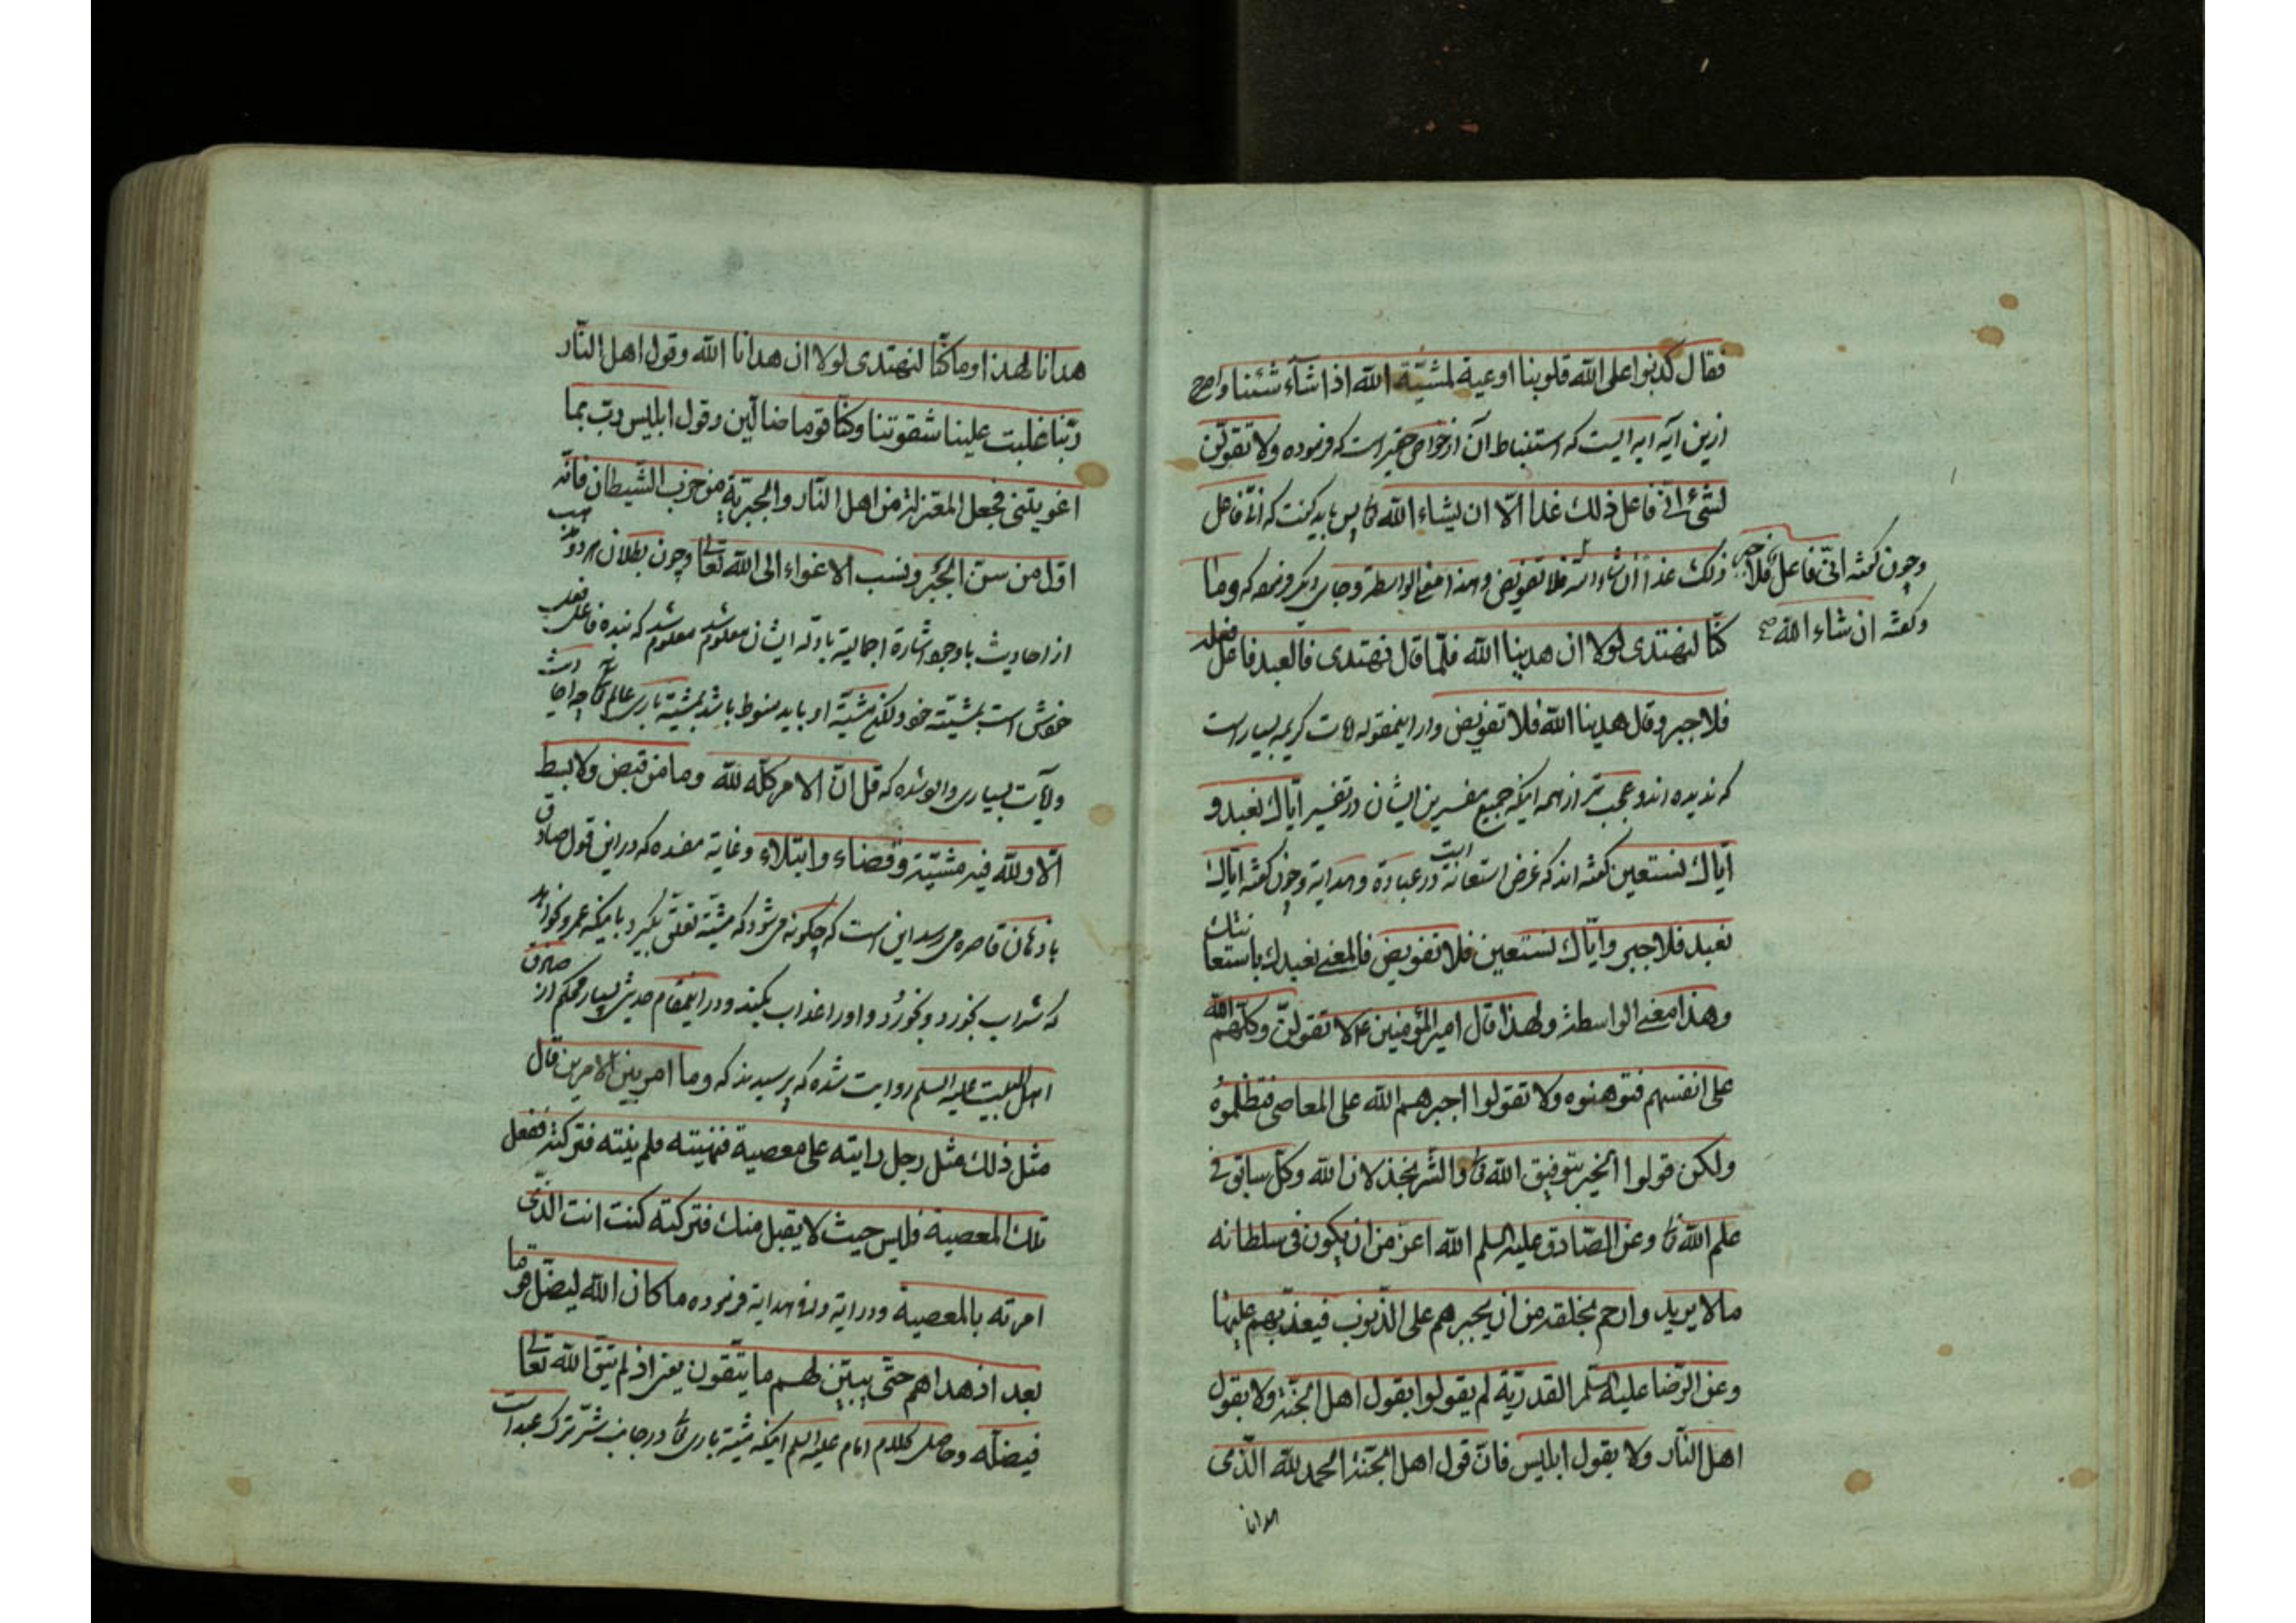 فقال كذبوا على الله قلوبنا اوعية لمشيّة الله اذا شآء شئنا واصرح
ازين آيه آيه ايست كه استنباط آن از خواص حقير است كه فرموده ولا تقولنّ
لشئ انّى فاعل ذلك غدا الّا ان يشاء الله تع پس بايد گفت كه انّى فاعل
ذلك غداً ان شاء الله فلا تفويض وهذا معنى الواسطة وجاى ديگر فرموده كه وما
وچون گفته انّى فاعل فلا جبر
وگفته ان شاء الله صح
كنّا لنهتدى لولا ان هدينا الله فلمّا قال نهتدى فالعبد فاعل فعله
فلا جبر وقال هدينا الله فلا تفويض واز اينمقوله آيات كريمه بسيار است
كه نديده اند وعجب تر از همه اينكه جميع مفسرين ايشان در تفسير ايّاك نعبد و
ايّاك نستعين گفته اند كه غرض استعانة در عبادة وهداية است وچون گفته ايّاك
نعبد فلا جبر وايّاك نستعين فلا تفويض فالمعنى نعبدك باستعانتك
وهذا معنى الواسطة ولهذا قال امير المؤمنين ع لا تقولنّ وكلهم الله
على انفسهم فتوهنوه ولا تقولوا اجبرهم الله على المعاصى فتظلموه
ولكن قولوا الخير بتوفيق الله تع والشّر بخذلان الله وكلّ سابق فى
علم الله تع وعن الصّادق عليه السلم الله اعز من ان يكون فى سلطانه
مالا يريد وارحم بخلقه من ان يجبرهم على الذّنوب فيعذّبهم عليها
وعن الرّضا عليه السّلم القدريّة لم يقولوا بقول اهل الجنّة ولا بقول
اهل النّار ولا بقول ابليس فانّ قول اهل الجنّة الحمد لله الّذى
هدانا
هدانا لهذا وما كنّا لنهتدى لولا ان هدانا الله وقول اهل النّار
ربّنا غلبت علينا شقوتنا وكنّا قوما ضالّين وقول ابليس ربّ بما
اغويتنى فجعل المعتزلة من اهل النّار والجبريّة من حزب الشّيطان فانّه
اوّل من سنّ الجبر ونسب الاغواء الى الله تعالى وچون بطلان هر دو مذهب
از احاديث با وجود اشارة اجماليّة بادلّه ايشان معلوم شد معلوم شد كه بنده فاعل فعل
خويش است بمشيّته خود لكن مشيّة او بايد منوط باشد بمشيّة بارى عالم تع چه احاديث
وآيات بسيارى وارد شده كه قل انّ الامر كلّه لله وما من قبض ولا بسط
الّا ولله فيه مشيّة وقضاء وابتلاء وغاية مفسده كه در اين قول صادق
باذهان قاصره مى رسد اين است كه چگونه مى شود كه مشيّة تعلّق بگيرد باينكه عمرو خواهد
كه شراب بخورد وبخورد واورا عذاب بكند ودر اينمقام حديثى بسيار محكم از صادق
اهل البيت عليه السلم روايت شده كه پرسيدند كه وما امر بين الامرين قال
مثل ذلك مثل رجل رايته على معصية فنهيته فلم ينته فتركته ففعل
تلك المعصية فليس حيث لا يقبل منك فتركته كنت انت الّذى
امرته بالمعصية ودر آية وافى هداية فرموده ما كان الله ليضلّ قوما
بعد اذ هداهم حتّى يبيّن لهم ما يتّقون يعنى اذ لم يتّق الله تعالى
فيضلّه وحاصل كلام امام عليه السلم اينكه مشيّة بارى تع در جانب شرّ ترك عبد است